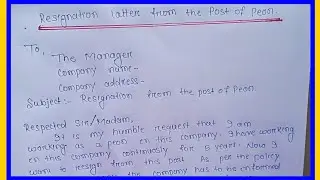 Resignation latter from the Post of Peon.
To,
The Manager
Company name-
Company address-
Subject:- Resignation from the post of Peon.
Respected Sir/Madam,
It is my humble request that I am
working as a peon in this company. I have working
in this company continuously for 5 year. Now I
want to resign from this post. As per the policy
the company has to be informed